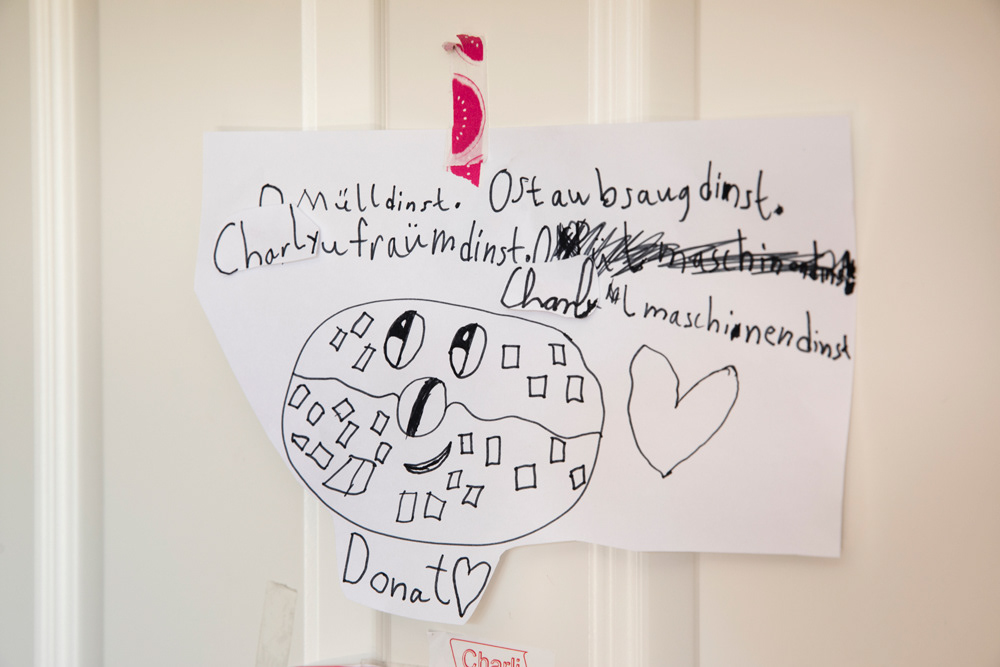 Mülldinst. Ostaubsaugdinst.
Charly ufraümdinst.
Charly lmaschinendinst
Donat
Charli